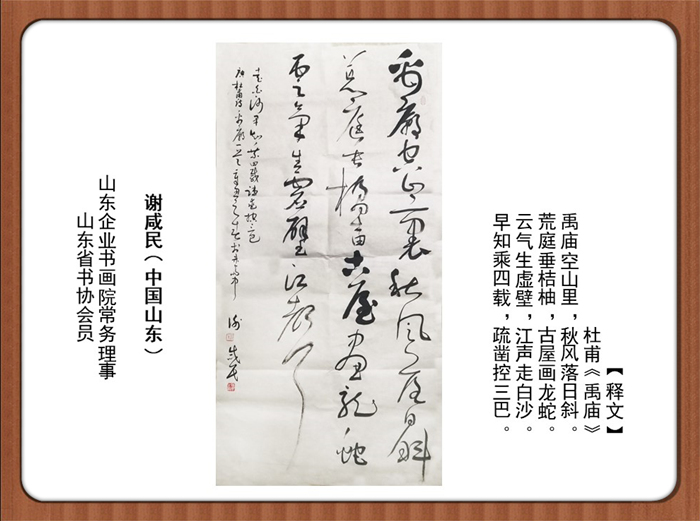 【释文】
杜甫《禹庙》
禹庙空山里，秋风落日斜。
荒庭垂桔柚，古屋画龙蛇。
云气生虚壁，江声走白沙。
早知乘四载，疏凿控三巴。
禹庙空山里秋风落日斜
荒庭垂橘柚古屋画龙蛇
云气生虚壁江声
走白沙早知乘四载疏凿控三巴
谢咸民
谢咸民（中国山东）
山东企业书画院常务理事
山东省书协会员